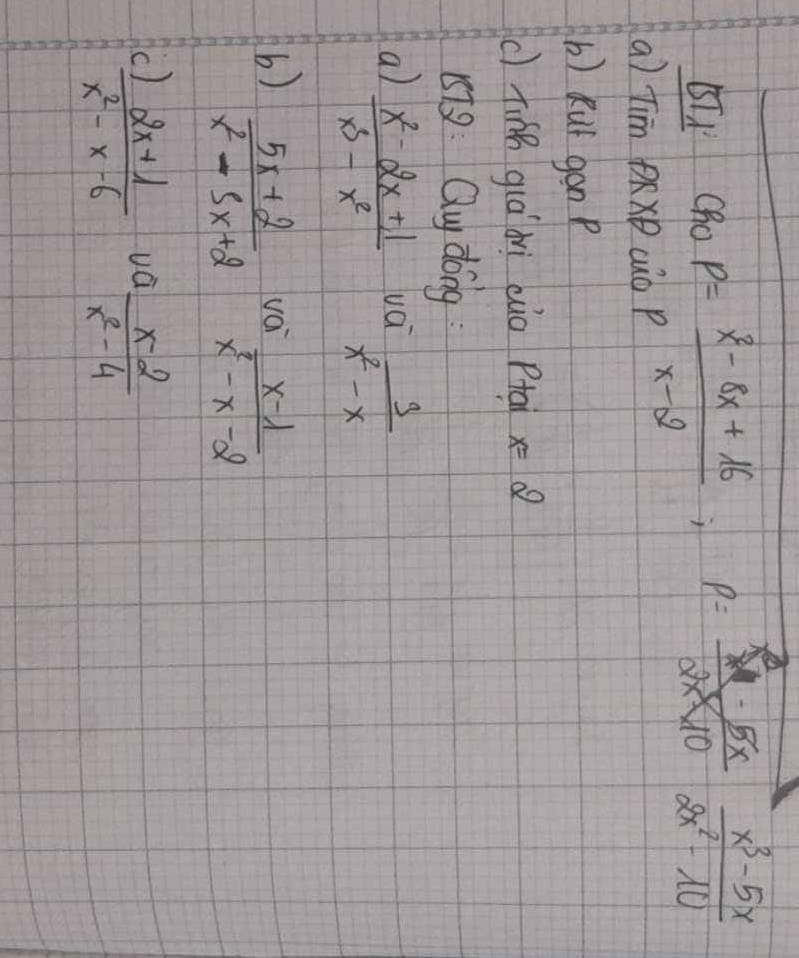 BT1: Cho P = (x² - 8x + 16)/(x - 2) ; P = (x³ - 5x)/(2x² - 10)
a) Tìm ĐKXĐ của P
b) Rút gọn P
c) Tính giá trị của P tại x = 2
BT2: Quy đồng:
a) (x² - 2x + 1)/(x³ - x²) và 3/(x² - x)
b) (5x + 2)/(x² - 3x + 2) và (x - 1)/(x² - x - 2)
c) (2x + 1)/(x² - x - 6) và (x - 2)/(x² - 4)